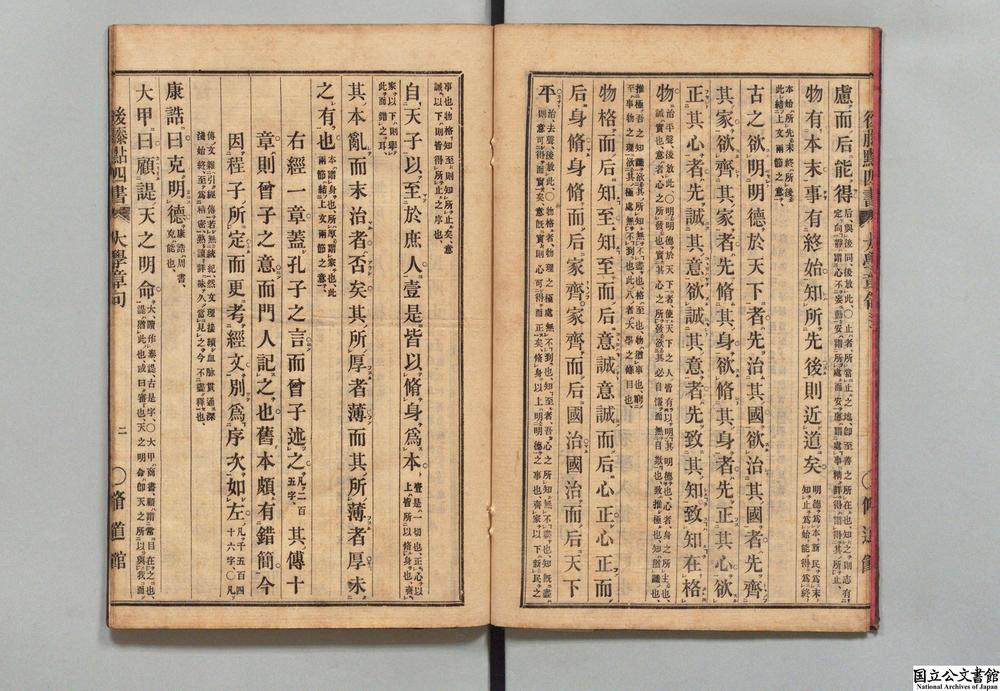 慮而后能得后、與後同、後放此、〇止者所當止之地、即至善之所在也、知之則志有定向、靜謂心不妄動、安謂所處而安、慮謂處事精詳、得謂得其所止、
物有本末事有終始知所先後則近道矣明德爲本、新民爲末、知止爲始、能得爲終、
本始所先、末終所後、此結上文兩節之意、
古之欲明明德於天下者先治其國欲治其國者先齊
其家欲齊其家者先脩其身欲脩其身者先正其心欲
正其心者先誠其意欲誠其意者先致其知致知在格
物治平聲、後放此、〇明明德於天下者、使天下之人皆有以明其明德也、心者身之所主也、誠實也、意者心之所發也、實其心之所發、欲其必自慊而無自欺也、致推極也、知猶識也、
推極吾之知識、欲其所知無不盡也、格至也、物猶事也、窮至事物之理、欲其極處無不到也、此八者大學之條目也、
物格而后知至知至而后意誠意誠而后心正心正而
后身脩身脩而后家齊家齊而后國治國治而后天下
平治去聲、後放此、〇物格者、物理之極處無不到也、知至者、吾心之所知無不盡也、知既盡則意可得而實矣、意既實則心可得而正矣、脩身以上、明明德之事也、齊家以下、新民之
事也、物格知至則知所止矣、意誠以下、則皆得所止之序也、
自天子以至於庶人壹是皆以脩身爲本壹是、一切也、正心以上、皆所以脩身也、齊
家以下、則舉此而錯之耳、
其本亂而末治者否矣其所厚者薄而其所薄者厚未
之有也本謂身也、所厚謂家也、此兩節結上文兩節之意、
右經一章蓋孔子之言而曾子述之凡二百五字、其傳十
章則曾子之意而門人記之也舊本頗有錯簡今
因程子所定而更考經文別爲序次如左凡千五百四十六字、〇凡
傳文雜引經傳、若無統紀、然文理接續、血脉貫通、深淺始終、至爲精密、熟讀詳味、久當見之、今不盡釋也、
康誥曰克明德康誥周書、克能也、
大甲曰顧諟天之明命大讀作泰、諟古是字、〇大甲商書、顧謂常目在之也、諟猶此也、或曰審也、天之明命即天之所以與我而
後藤點四書
大學章句
二
〇脩道館
国立公文書館
National Archives of Japan